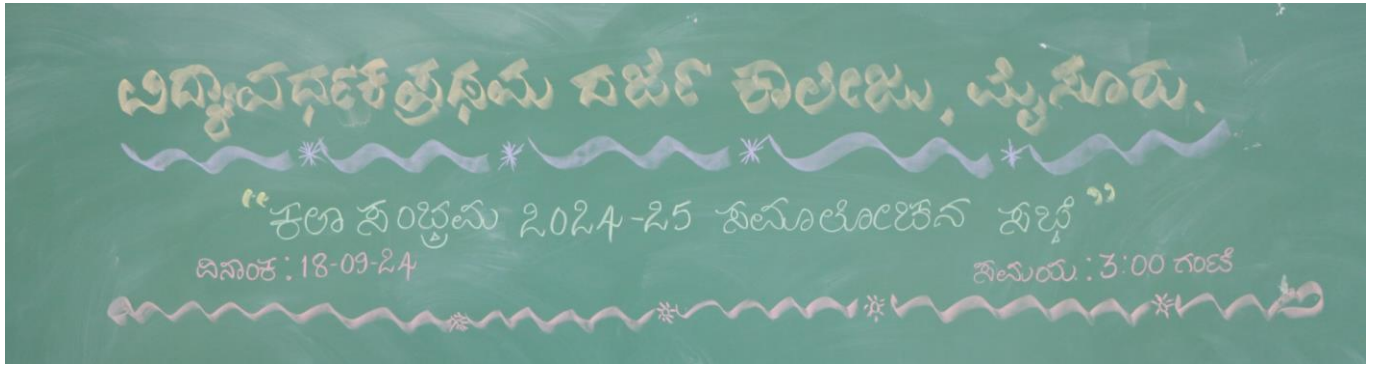 ವಿದ್ಯಾವರ್ಧಕ ಪ್ರಥಮ ದರ್ಜೆ ಕಾಲೇಜು, ಮೈಸೂರು.
“ಕಲಾ ಸಂಭ್ರಮ 2024-25 ಸಮಾಲೋಚನ ಸಭೆ”
ದಿನಾಂಕ : 18-09-24 ಸಮಯ : 3:00 ಗಂಟೆ